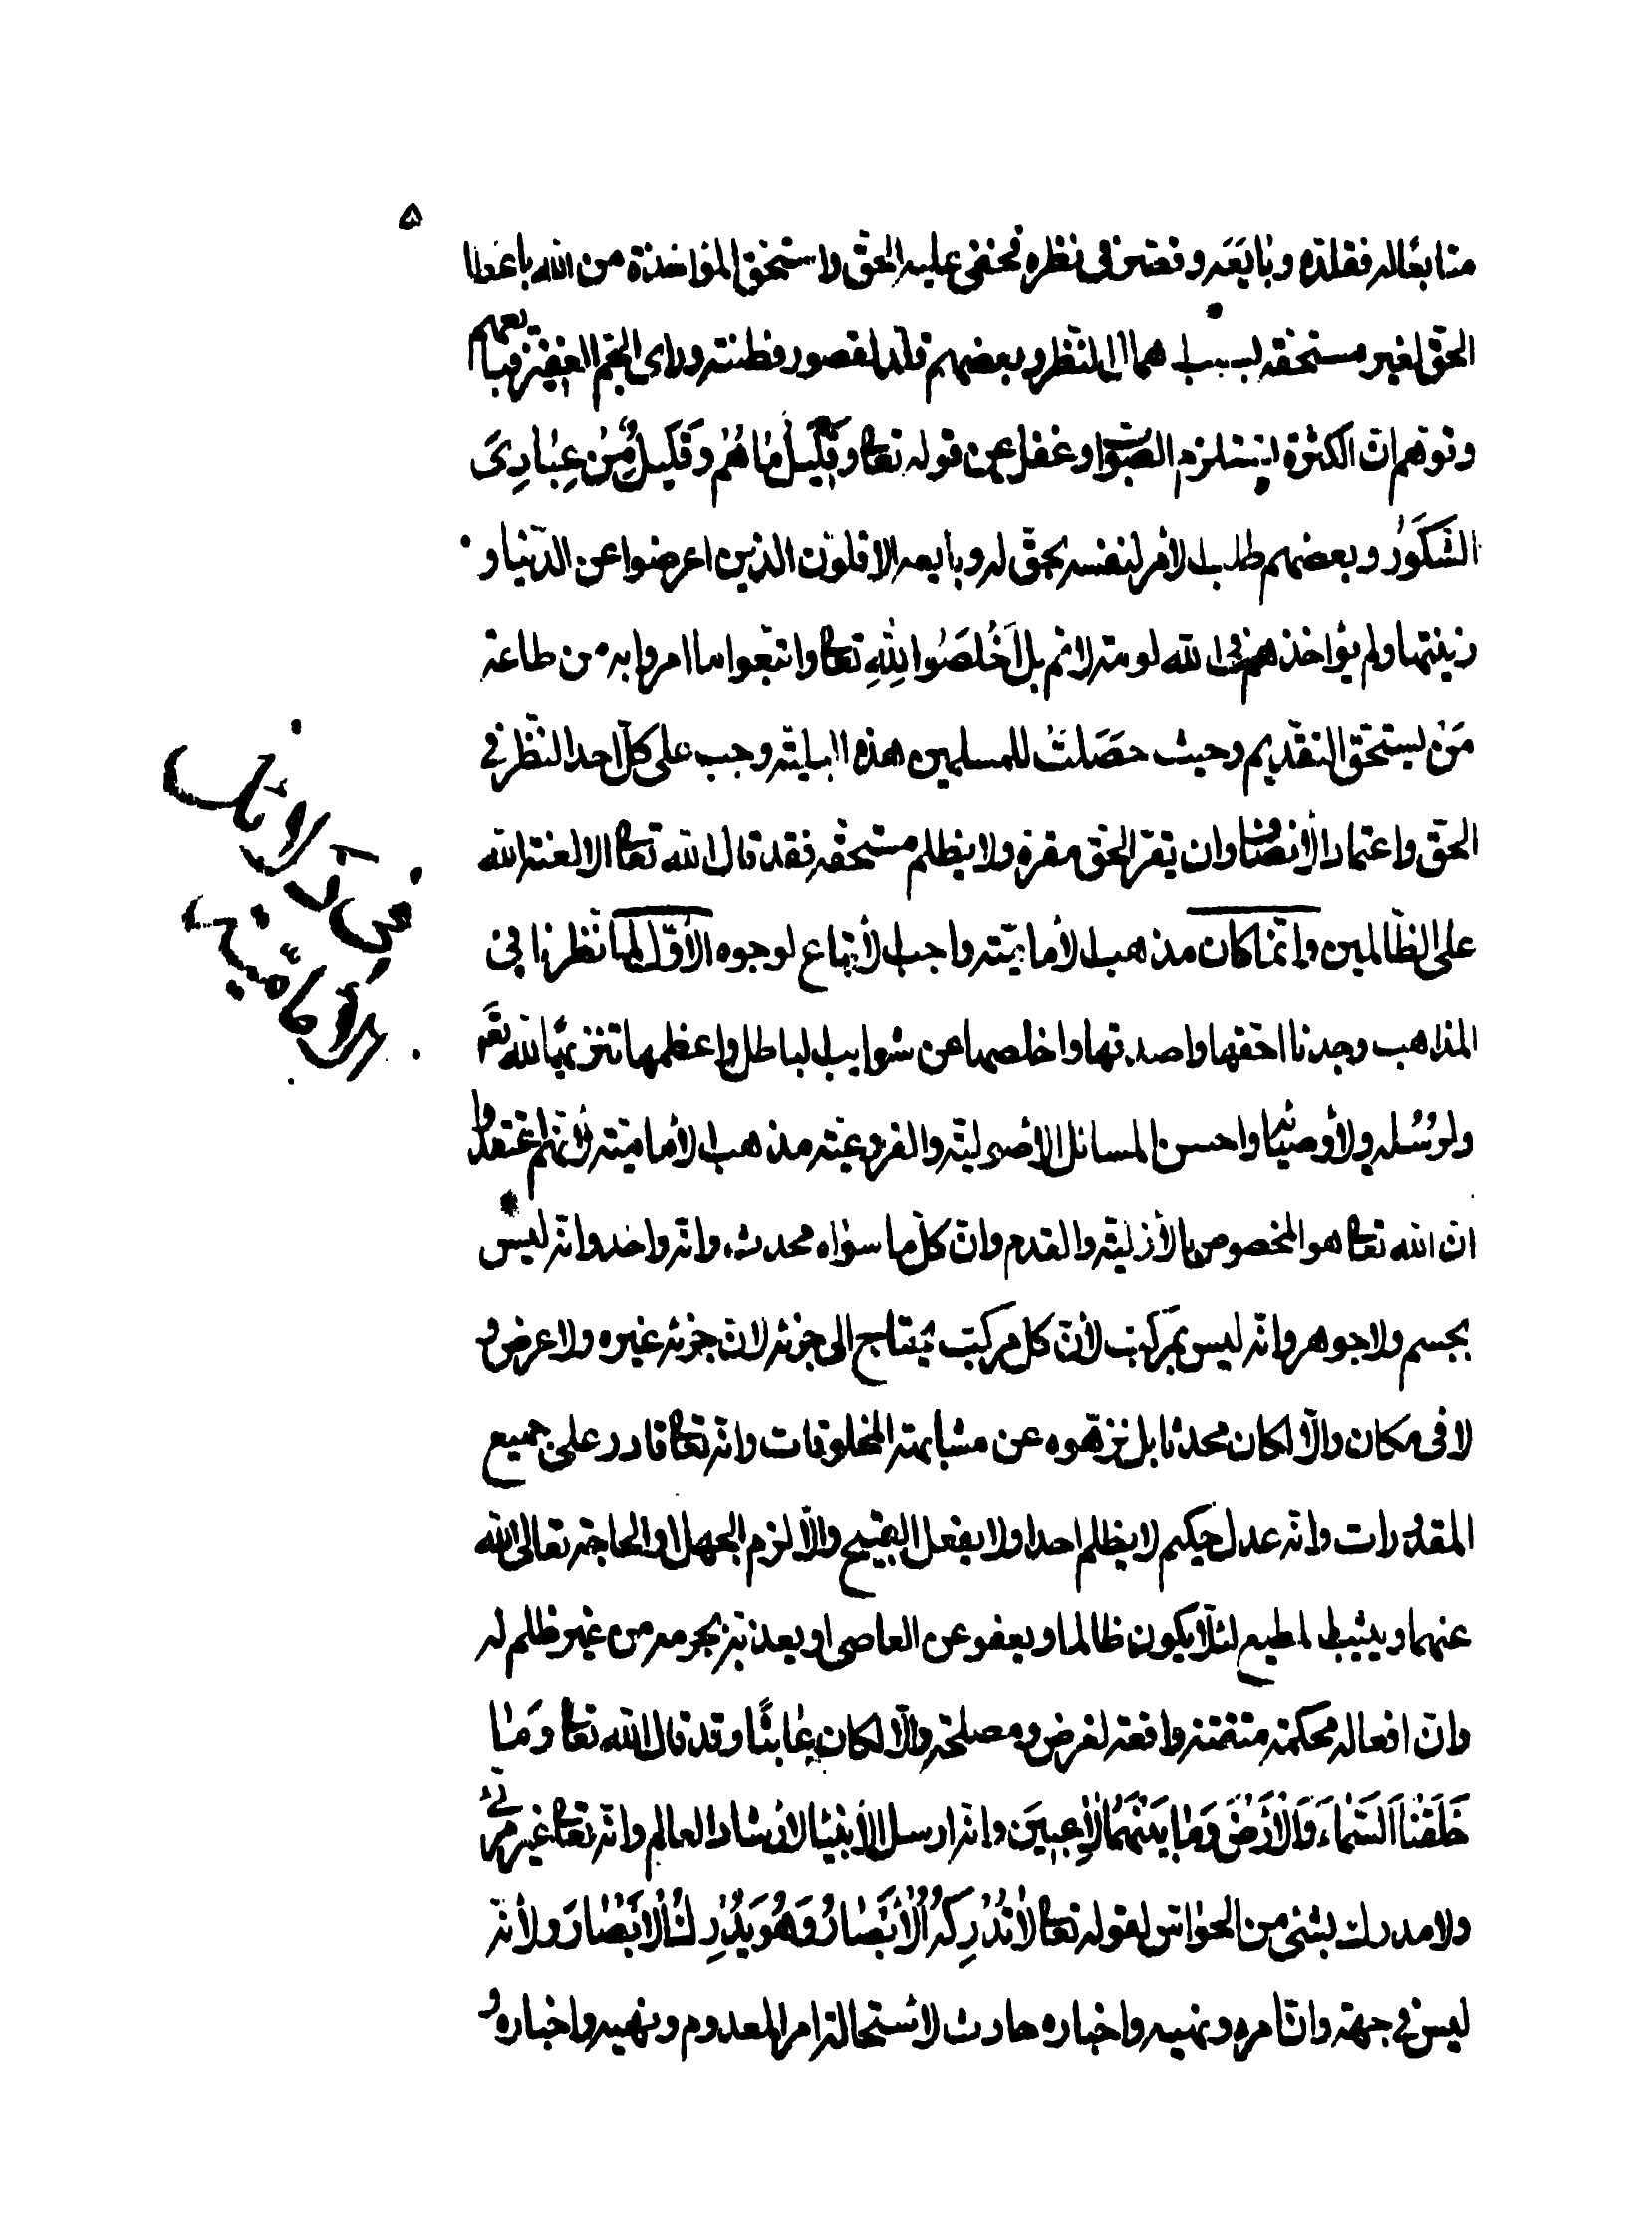 ۵
متابعًا له فقلده وبايعه وقصر في نظره فخفى عليه الحق واستحق المؤاخذة من الله باعطا
الحق لغير مستحقه بسبب اهمال النظر وبعضهم قلد لقصور فطنته وراى الجم الغفير فبايعهم
وتوهم ان الكثرة يستلزم الصواب وغفل عن قوله تعا وَقَلِيلٌ مَا هُمْ وَقَلِيلٌ مِّنْ عِبَادِىَ
الشَّكُورُ وبعضهم طلب الأمر لنفسه بحق له وبايعه الاقلون الذين اعرضوا عن الدنيا و
زينتها ولم يؤاخذهم في الله لومة لائم بل اَخْلَصُوا لِلّٰهِ تعا واتبعوا ما امروا به من طاعة
مَن يستحق التقديم وحيث حَصَلَتْ للمسلمين هذه البلية وجب على كل احد النظر في
الحق واعتماد الأنصاف وان يقر الحق مقره ولا يظلم مستحقه فقد قال الله تعا الا لعنة الله
على الظالمين وانما كان مذهب الأمامية واجب الأتباع لوجوه الأوّل لما نظرنا في
المذاهب وجدنا احقها واصدقها واخلصها عن شوايب الباطل واعظمها تنزيهًا لله تعَم
ولرُسُله ولأوصيائه واحسن المسائل الاصولية والفروعية مذهب الأمامية لأنهم اعتقدوا
ان الله تعا هو المخصوص بالأزلية والقدم وان كل ما سواه محدث، وانه واحد وانه ليس
بجسم ولا جوهر وانه ليس بمركب لأن كل مركب يحتاج الى جزئه لان جزئه غيره ولا عرض و
لا في مكان والّا لكان محدثا بل نزهوه عن مشابهة المخلوقات وانه تعا قادر على جميع
المقدورات وانه عدل حكيم لا يظلم احدا ولا يفعل القبيح والّا لزم الجهل او الحاجة تعالى الله
عنهما ويثيب المطيع لئلا يكون ظالما ويعفو عن العاصي او يعذبه بجرمه من غير ظلم له
وان افعاله محكمة متقنة واقعة لغرض ومصلحة والّا لكان عابثًا وقد قال الله تعا وَمَا
خَلَقْنَا السَّمَاءَ وَالْأَرْضَ وَمَا بَيْنَهُمَا لَاعِبِينَ وانه ارسل الأنبيا لأرشاد العالم وانه تعا غير مرئى
ولا مدرك بشئ من الحواس لقوله تعا لَا تُدْرِكُهُ الْأَبْصَارُ وَهُوَ يُدْرِكُ الْأَبْصَارَ ولأنه
ليس في جهة وان امره ونهيه واخباره حادث لاستحالة امر المعدوم ونهيه واخباره و